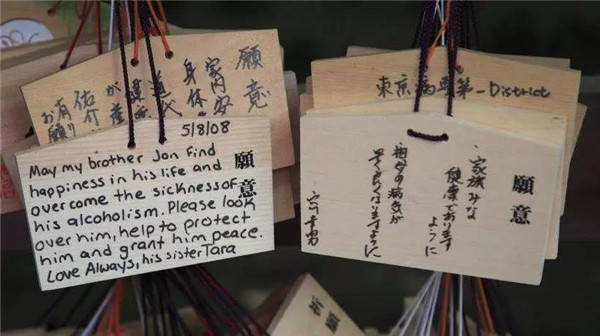 願意
家内安
身体
道代
が
佑介
5/8/08
May my brother Jon find
happiness in his life and
overcome the sickness of
his alcoholism. Please look
over him, help to protect
him and grant him peace.
Love Always, his sister Tara
願意
東京 第一District
願意
家族みな
健康であります
ように
祖母の病気が
早くよくなりますように
祈願